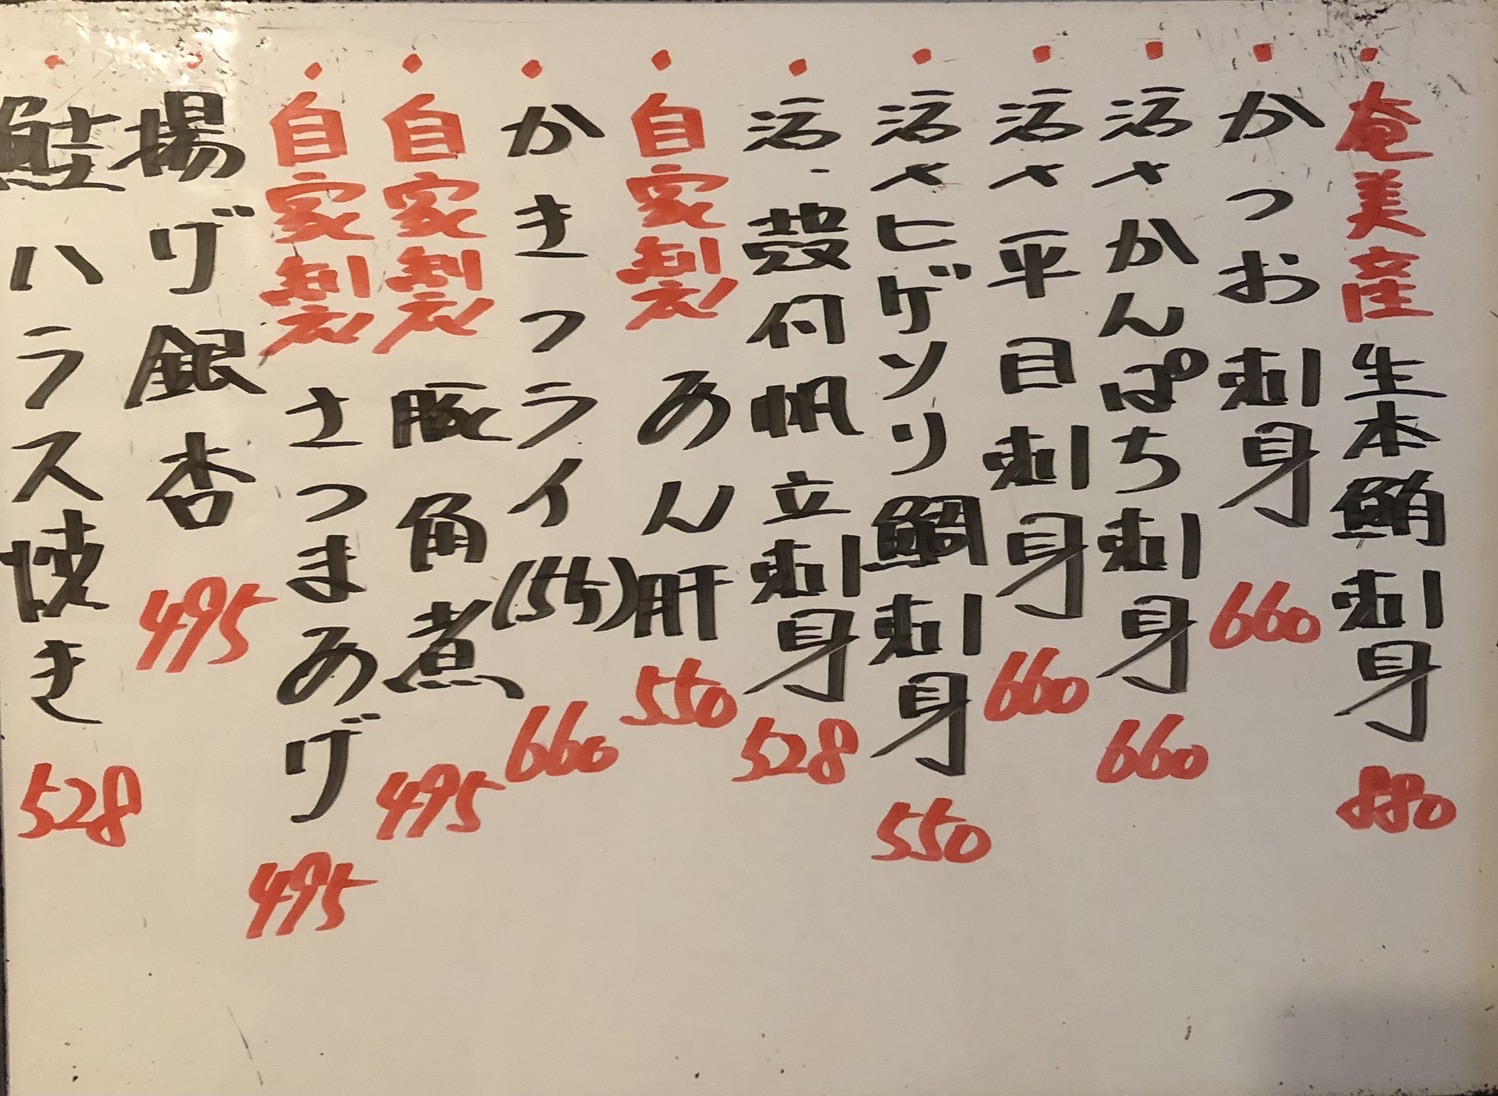 ・奄美産生本鮪刺身 880
・かつお刺身 660
・活〆かんぱち刺身 660
・活〆平目刺身 660
・活〆ヒゲソリ鯛刺身 550
・活・殻付帆立刺身 528
・自家製あん肝 550
・かきフライ(5ケ) 660
・自家製豚角煮 495
・自家製さつまあげ 495
・揚げ銀杏 495
・鮭ハラス焼き 528